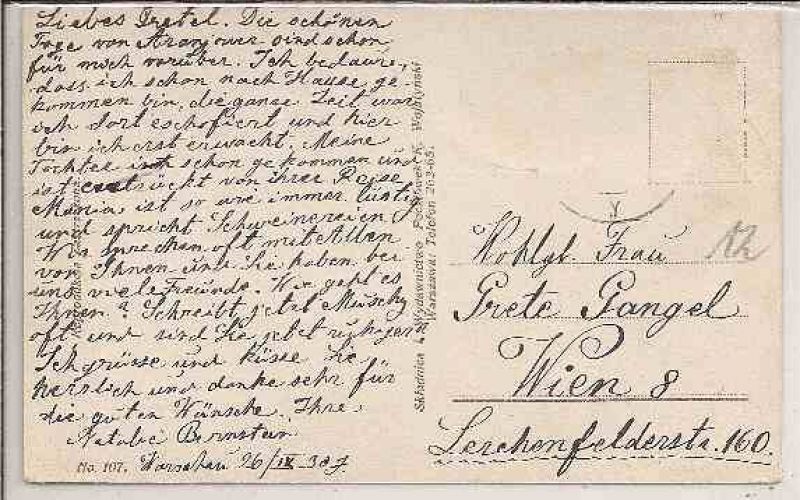 Liebes Gretel. Die schönen
Tage von Aranjouer sind schon
für mich vorüber. Ich bedaure,
dass ich schon nach Hause ge-
kommen bin, die ganse Zeit war
ich dort echofiert und hier
bin ich erst erwacht. Meine
Tochter ist schon gekommen und
ist entzückt von ihrer Reise
Mania ist so wie immer lustig
und spricht Schweinereien
Wir sprechen oft mit Allen
von Ihnen und Sie haben bei
uns viele Freunde. Wie geht es
Ihnen? Schreibt jetzt
oft und sind Sie jetzt ruhiger?
Ich grüsse und küsse Sie
herzlich und danke sehr für
die guten Wünsche. Ihre
Bernstein
No. 107. Warschau 26/IX 30
Wydawnictwo Pocztówek K. Wojutyński
Warszawa. Telefon 262-65.
Wohlgb. Frau
Grete Gangel
Wien 8
Lerchenfelderstr. 160.